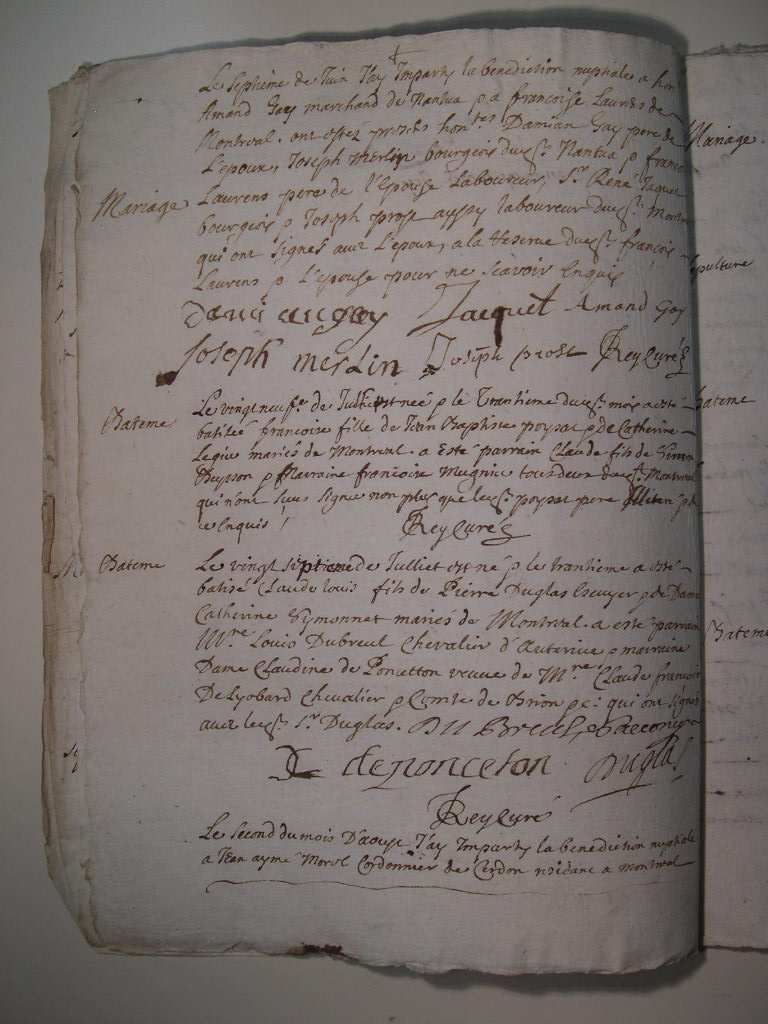 Le septième de Juin J'ay Imparty la benediction nuptiale a hon
Amand Gay marchand de Nantua p a francoise Laurens de
Montreal. ont estez presens hon.tes Damian Gay pere de
L'epoux, Joseph Merlin bourgeois du Nantua p francois
Mariage Laurens pere de l'Epouse Laboureur, Sr. René Jaquet
bourgeois p Joseph prost aussy laboureur du Montreal
qui ont signes avec L'epoux, a la reserve du francois
Laurens p L'epouse pour ne scavoir Enquis
Jacquet Amand Gay
Joseph merlin Joseph prost Rey Curé
Bateme Le vingt neufe de Julliet est née p le trantieme du mois a esté
batisée francoise fille de Jean Baptiste poysat p de Catherine
mariés de Montreal. a esté parrain Claude fils de
Buysson p Marraine francoise Mugnier tous deux du Montreal
qui n'ont sceu signer non plus que le poysat pere
ce Enquis
Rey Curé
Bateme Le vingt septiene de Julliet est né p le trantieme a esté
batisé Claude Louis fils de Pierre Duglas Escuyer p de Dame
Catherine Symonnet mariés de Montreal. a esté parrain
Mre. Louis Dubreul Chevalier d'auterive p marraine
Dame Claudine de Poncetton veuve de Mre. Claude francois
De Lyobard Chevalier p Comte de Brion pc: qui ont signés
avec le Sr. Duglas. Du Breul
deponceton Duglas
Rey Curé
Le second du mois D'aoust J'ay Imparty la benediction nuptiale
a Jean ayme Morel Cordonnier de Cerdon residant a Montreal
Mariage.
sepulture
bateme
Bateme